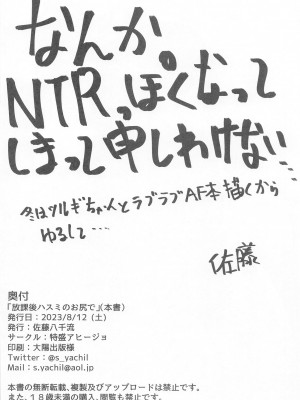 なんか
NTRっぽくなって
しまって申しわけない…
冬はツルギちゃんとラブラブAF本描くから
ゆるして…
佐藤
奥付
「放課後ハスミのお尻で」(本書)
発行日：2023/8/12 (土)
発行：佐藤八千流
サークル：特盛アヒージョ
印刷：大陽出版様
Twitter：@s_yachil
Mail：s.yachil@aol.jp
本書の無断転載、複製及びアップロードは禁止です。
また、18歳未満の購入、閲覧も禁止です。